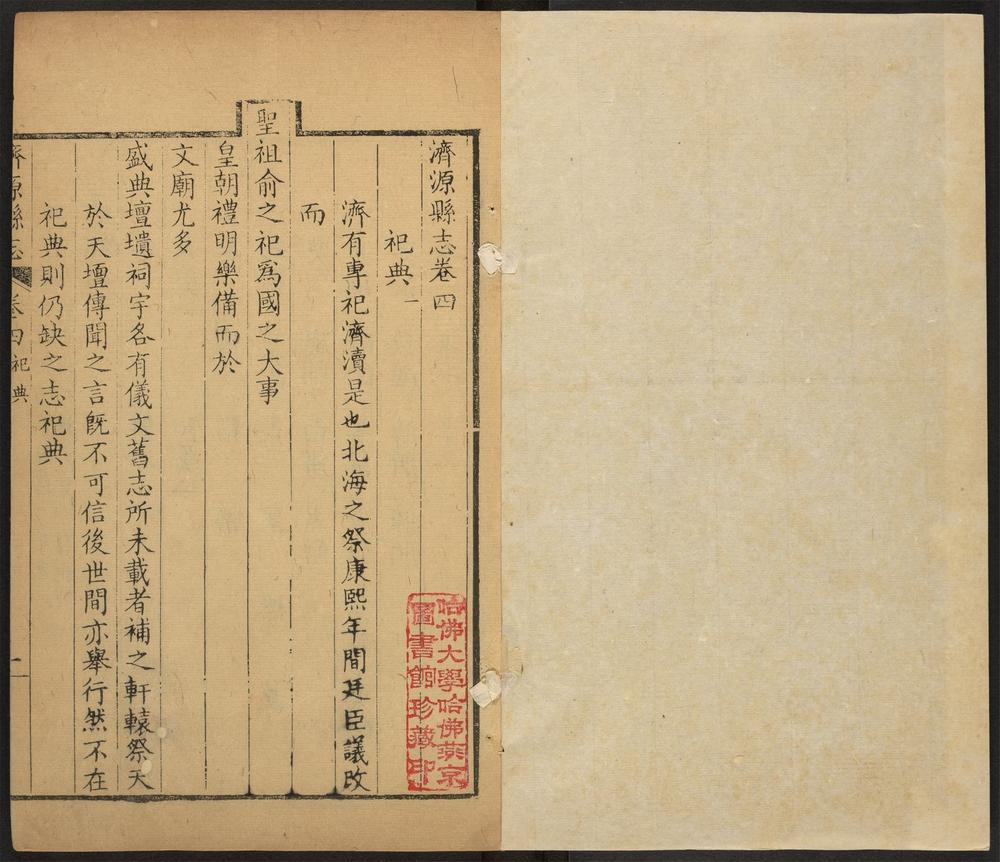 濟源縣志卷四
祀典一
濟有專祀濟瀆是也北海之祭康熙年間廷臣議改
而
聖祖俞之祀爲國之大事
皇朝禮明樂備而於
文廟尤多
盛典壇壝祠宇各有儀文舊志所未載者補之軒轅祭天
於天壇傳聞之言旣不可信後世間亦舉行然不在
祀典則仍缺之志祀典
濟源縣志 卷四祀典 一
哈佛大學哈佛燕京
圖書館珍藏印